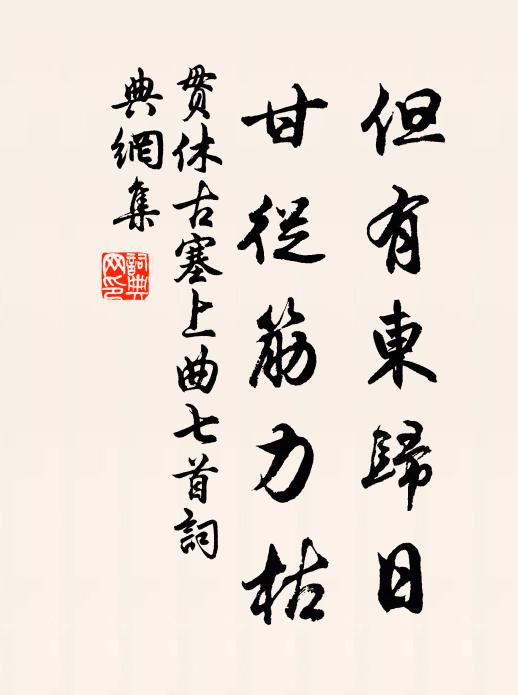 但有東歸日
甘從筋力枯
貫休古塞上曲七首詞
典網集
詞典网印